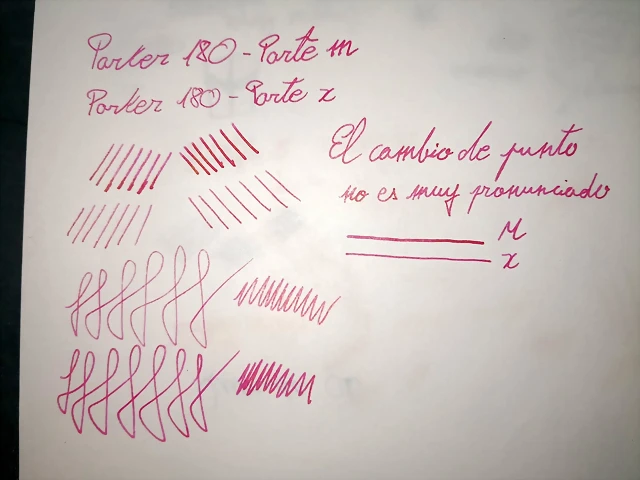 Parker 180 - Parte m
Parker 180 - Parte x
El cambio de punto
no es muy pronunciado
M
x